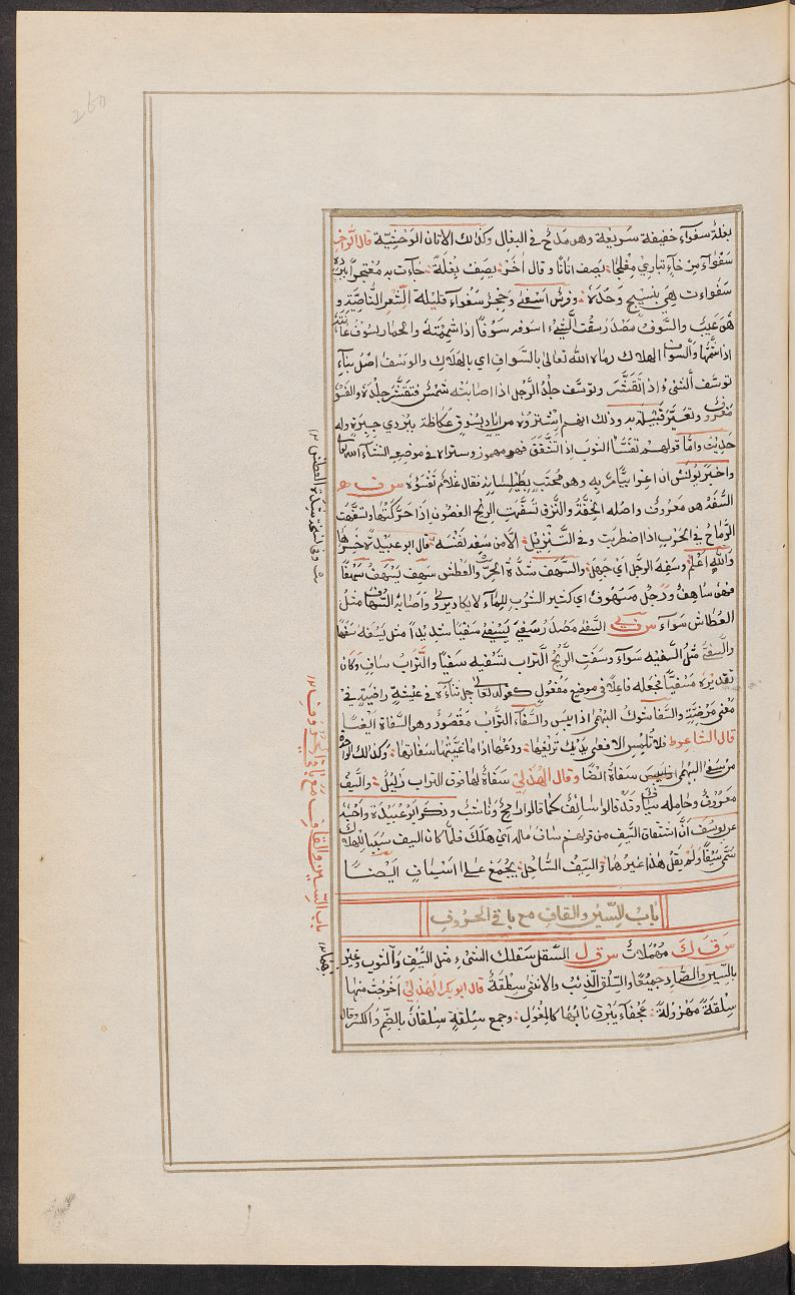 260
بغلة سفواء خفيفة سريعة وهو مدح في البغال وكذلك الاتان الوحشية قال الراجز
سفواء مرخاء تباري مغلجا يصف اتانا وقال آخر يصف بغلة جاءت به معتجرا ببرده
سفواء تهي بنسيج وحده وفرس اسفى وحجر سفواء قليلة الشعر الناصية و
هو عيب والسوف مصدر سفت الشيء اسوفه سوفا اذا شممته والحمار يسوف عانته
اذا شمها والسواف الهلاك رماه الله تعالى بالسواف اي بالهلاك والوسف اصل بناء
توسف الشيء اذا تقشر وتوسف جلد الرجل اذا اصابته شمس فتقشر جلده والفسو
معروف وتعير قبيلة به وذلك انهم اشتروه من اياد بسوق عكاظ ببردي حبرة وله
حديث واما قولهم تفسأ الثوب اذا تشقق فهو مهموز وستراه في موضعه ان شاء الله تعالى
واخبر يونس ان اعرابيا مر به وهو محتب بطيلسانه فقال غلام تفسؤه س ف ه
السفه هو معروف واصله الخفة والنزق تسفهت الريح الغصون اذا حركتها وتسفهت
الرماح في الحرب اذا اضطربت وفي التنزيل الا من سفه نفسه قال ابو عبيدة خسرها
والله اعلم وسفه الرجل اي جهل والسهف شدة الحر والعطش سهف يسهف سهفا
فهو ساهف ورجل مسهوف اي كثير الشرب للماء لا يكاد يروى واصابه السهاف مثل
العطاش سواء س ف ي السفى مصدر سفي يسفى سفيا شديدا مثل يسفه سفها
والسفي مثل السفيه سواء وسفت الريح التراب تسفيه سفيا والتراب ساف وكان
تقديره مسفيا فجعله فاعلا في موضع مفعول كقوله تعالى جل ثناؤه في عيشة راضية في
معنى مرضية والسفا شوك البهمى اذا يبس والسفا التراب مقصور وهي السفاة ايضا
قال الشاعر فلا تلمس الافعى يديك تريغها ودعها اذا ما غيبتها سفاتها وكذلك الواحدة
من سفا البهمى سفاة ايضا وقال الهذلي سفاة لها فوق التراب زليل والسيف
معروف وحامله سياف وقد قالوا سائف كما قالوا رامح وناشب وذكر ابو عبيدة واحسبه
عن يونس ان اشتقاق السيف من قولهم ساف ماله اي هلك فلما كان السيف سببا للهلاك
سمي سيفا ولم يقل هذا غيرهما والسيف الساحل يجمع على اسياف ايضا
باب السين والقاف مع باقي الحروف
س ق ك مهملات س ق ل السقل سقلك الشيء مثل السيف والثوب وغير
بالسين والصاد جميعا والسلق الذئب والانثى سلقة قال ابو بكر الهذلي اخرجت منها
سلقة مهزولة عجفاء يبرق نابها كالمغول وجمع سلقة سلقان بالضم والكسر وقال
وفي نسخة شدة العطش ١٢
باب السين والقاف مع باقي الحروف ١٢